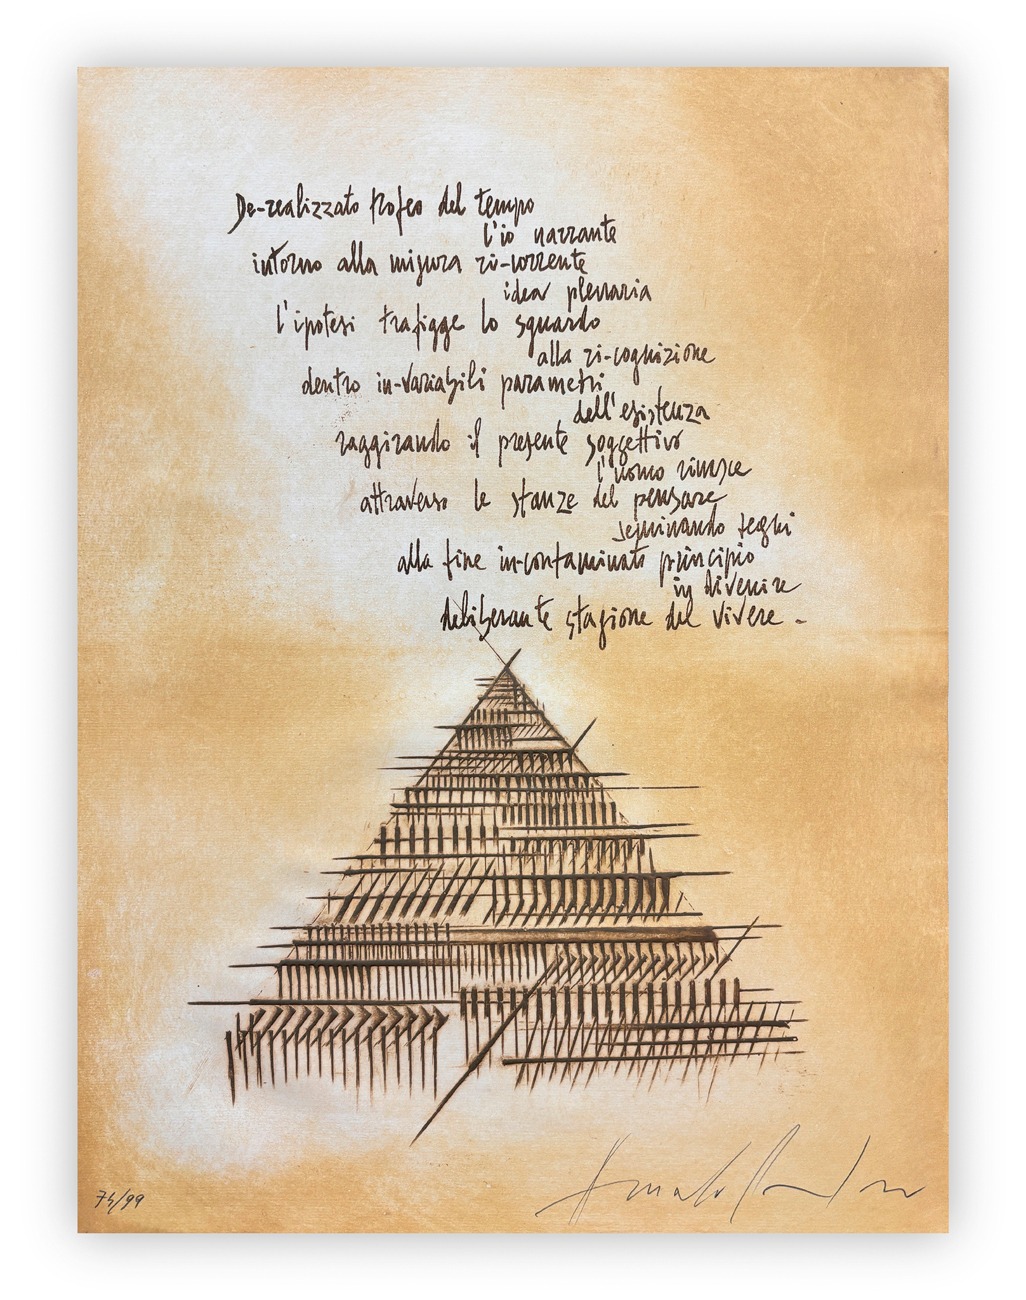 De-realizzato trofeo del tempo
l'io narrante
intorno alla misura ri-corrente
idea plenaria
l'ipotesi trafigge lo sguardo
alla ri-cognizione
dentro in-variabili parametri
dell'esistenza
raggirando il presente soggettivo
l'uomo rinasce
attraverso le stanze del pensare
seminando segni
alla fine in-contaminato principio
in divenire
deliberante stagione del vivere -
Arnaldo Pomodoro